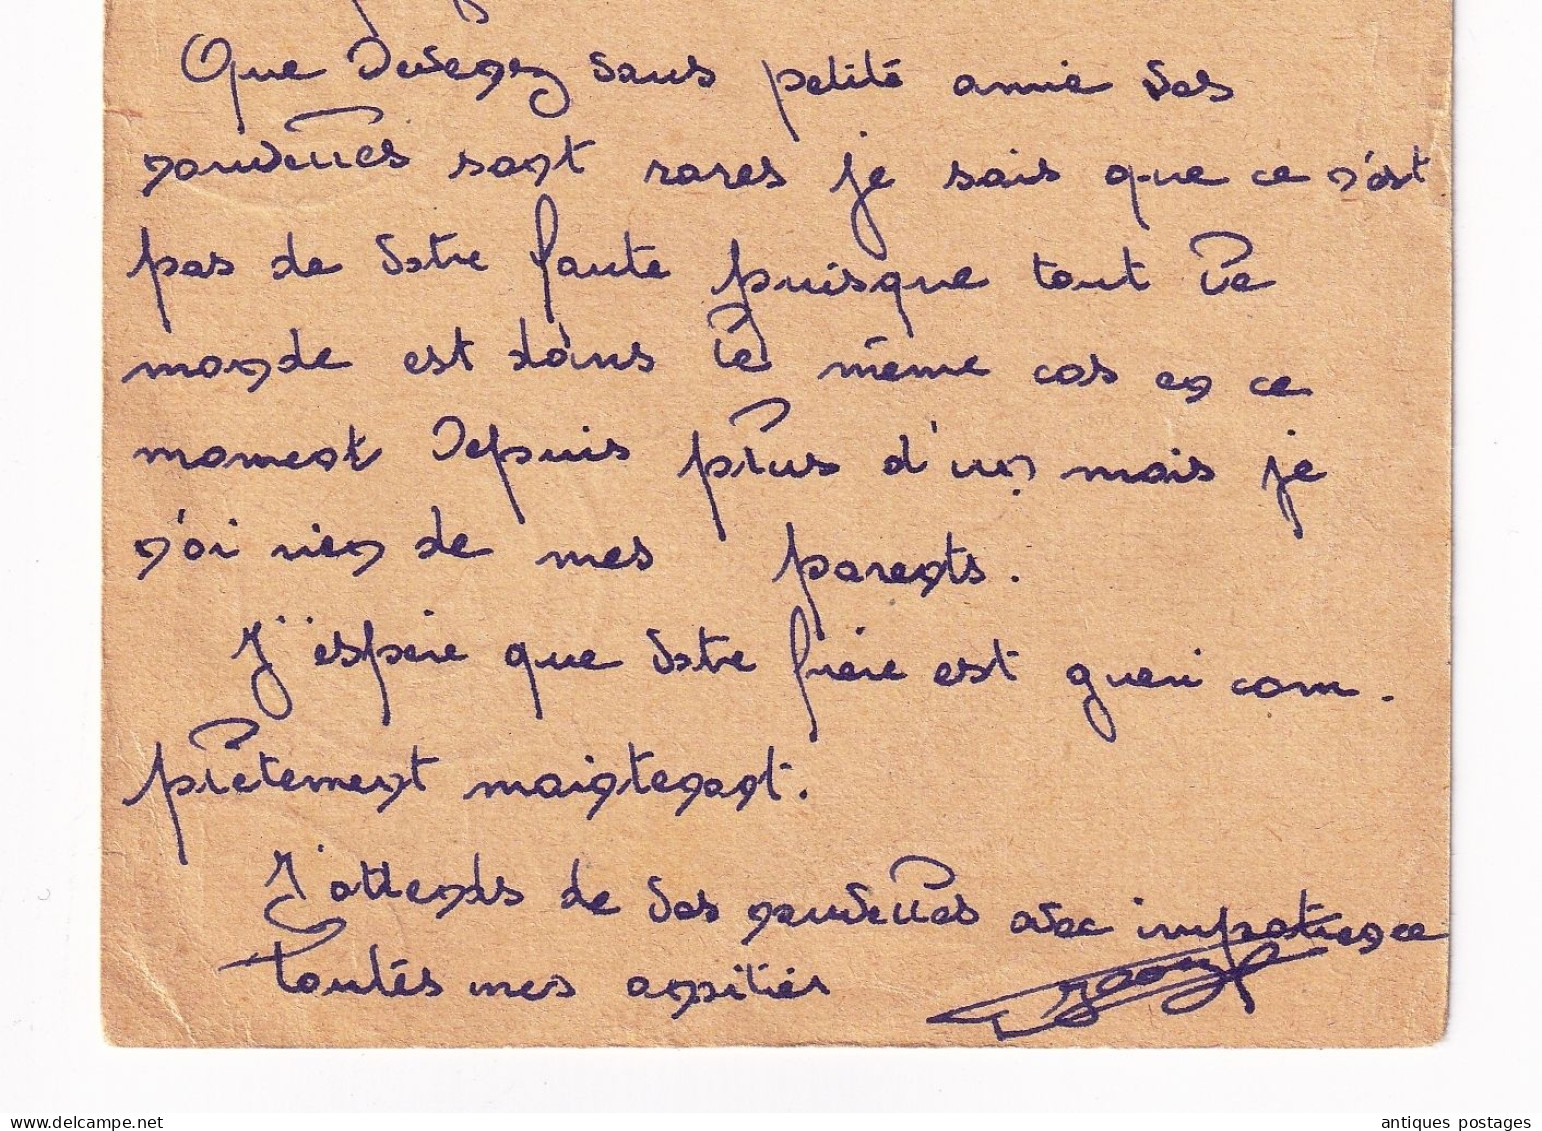 Que devenez vous petite amie vos
nouvelles sont rares je sais que ce n'est
pas de votre faute puisque tout le
monde est dans le même cas en ce
moment Depuis plus d'un mois je
n'ai rien de mes parents.
J'espère que votre frère est gueri com-
plètement maintenant.
J'attends de vos nouvelles avec impatience
Toutes mes amitiés
www.delcampe.net
antiques postages